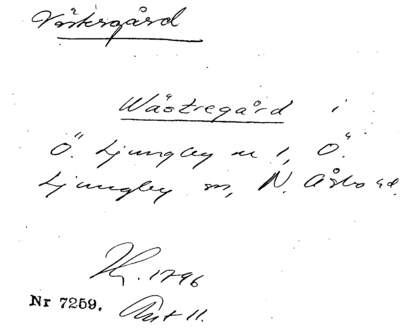 Västergård
Wästregård i
Ö. Ljungby n 1, Ö.
Ljungby sn, N. Åsbo hd.
1796
Nr 7259. Ant 11.